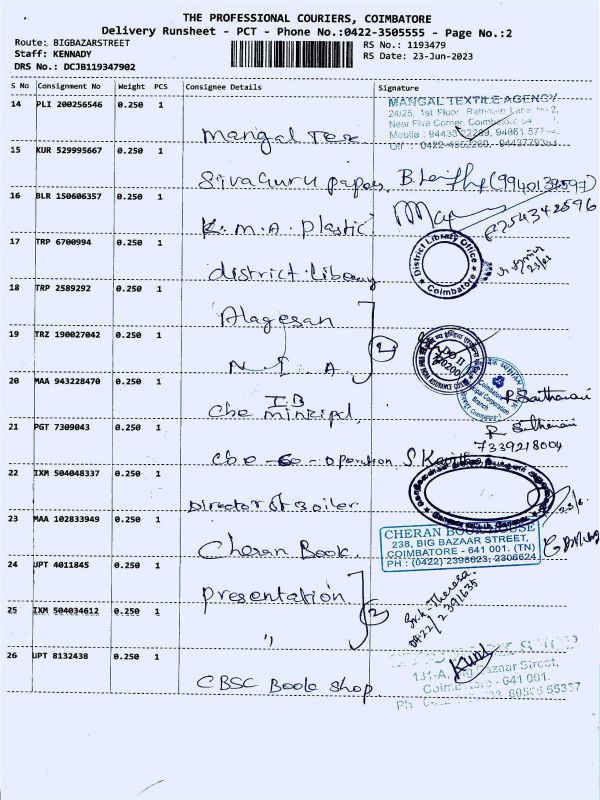 THE PROFESSIONAL COURIERS, COIMBATORE
Delivery Runsheet - PCT - Phone No.:0422-3505555 - Page No.:2
Route: BIGBAZARSTREET
RS No.: 1193479
Staff: KENNADY
RS Date: 23-Jun-2023
DRS No.: DCJB119347902
S No Consignment No Weight PCS Consignee Details Signature
14 PLI 200256546 0.250 1
MANGAL TEXTILE AGENCY
24/25, 1st Floor
Near Five Corner, Coimbatore
Mobile : 94435
Mangal Tex
15 KUR 529995667 0.250 1
Sivaguru papers
16 BLR 150606357 0.250 1
K.M.A. Plastic
17 TRP 6700994 0.250 1
District Library Office
Coimbatore
23/6
district. Library
18 TRP 2589292 0.250 1
Alagesan
19 TRZ 190027042 0.250 1
2
N. I. A.
20 MAA 943228470 0.250 1
I.B
Cbe
21 PGT 7309043 0.250 1
7339218004
Cbe - co - operation
22 IXM 504048337 0.250 1
Director of Boiler
23 MAA 102833949 0.250 1
CHERAN BOOK HOUSE
238, BIG BAZAAR STREET,
COIMBATORE - 641 001. (TN)
PH : (0422) 2396623, 2306624
Cheran Book.
24 JPT 4011845 0.250 1
presentation
25 IXM 504034612 0.250 1
2
"
26 JPT 8132438 0.250 1
131-A, Big Bazaar Street,
Coimbatore - 641 001.
CBSC Book Shop.